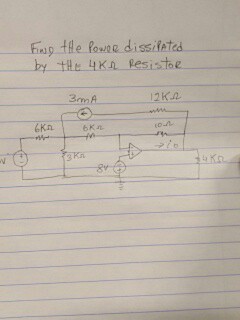 Find the Power dissipated
by the 4KΩ Resistor
3mA 12KΩ
6KΩ 6KΩ 10Ω
→ Io
V 3KΩ 8V 4KΩ